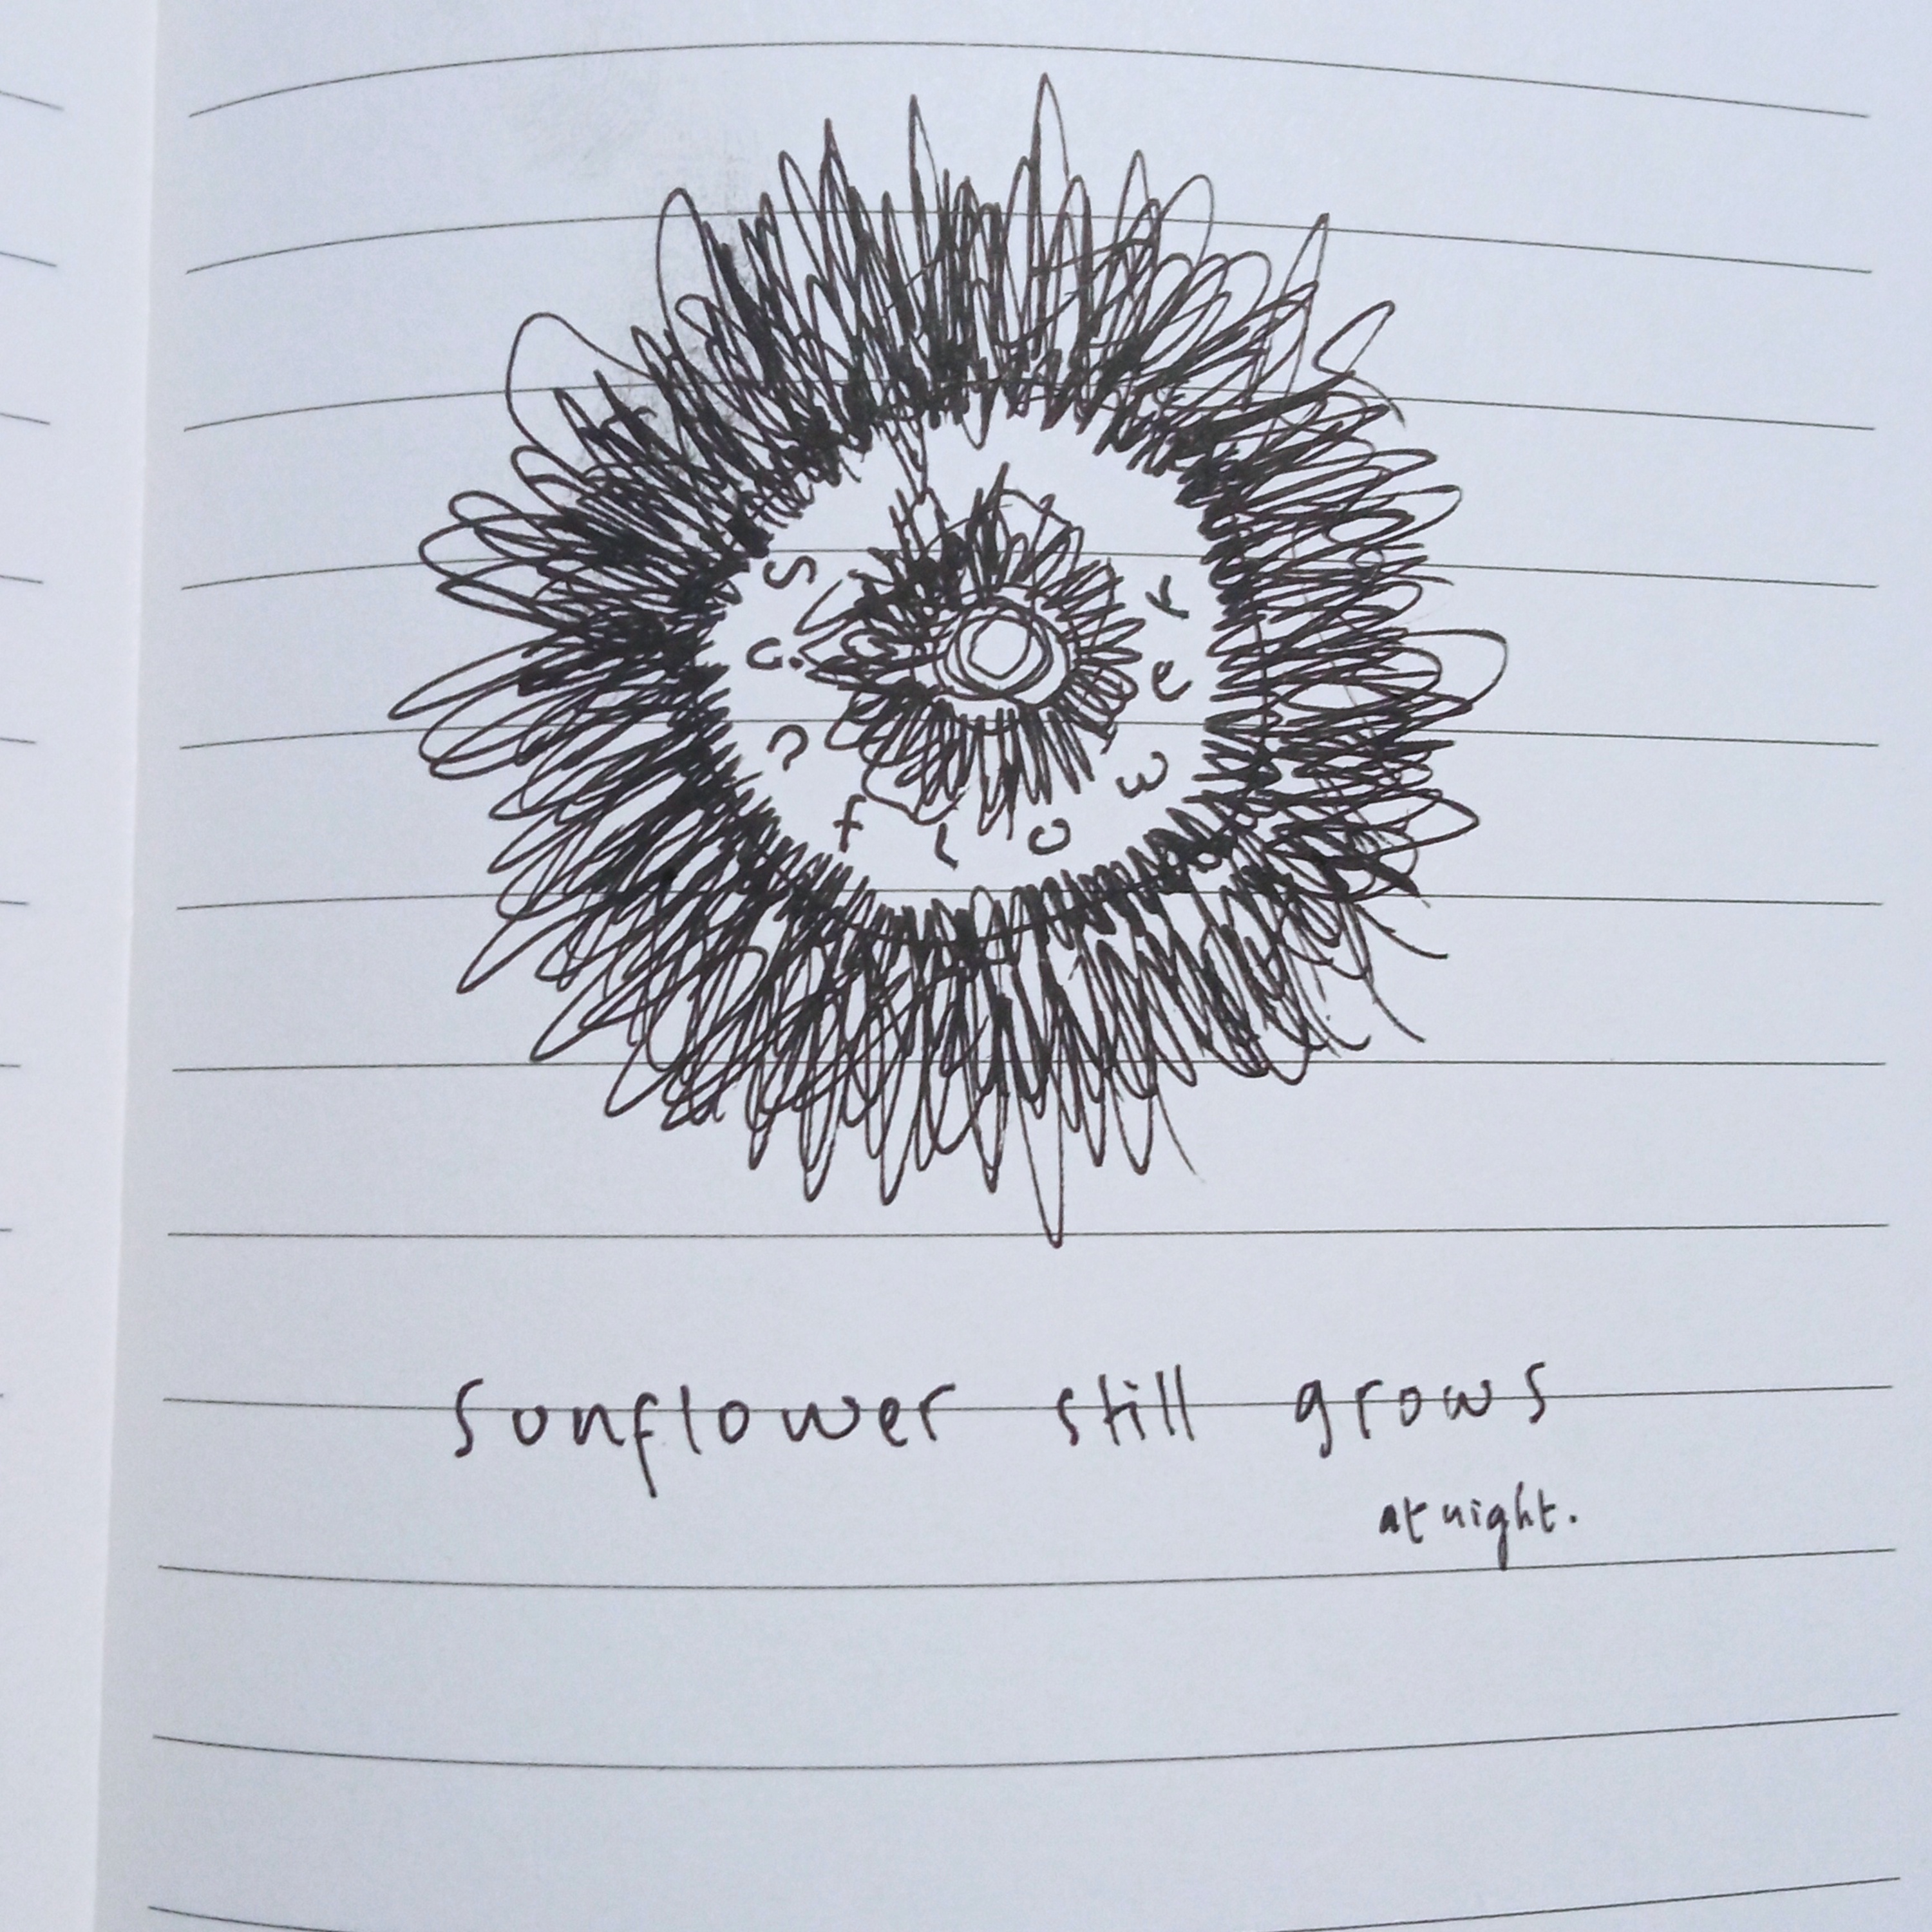 sunflower
sunflower still grows
at night.